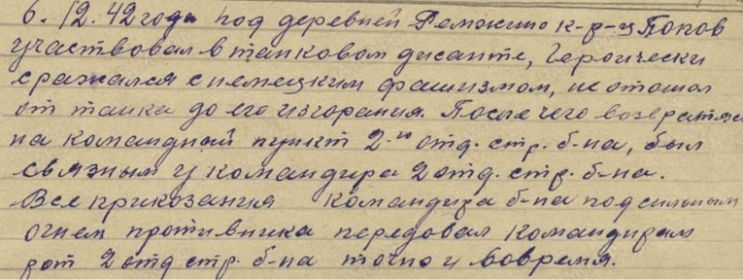 6. 12. 42 года под деревней Ремжино к-р-ц Попов
участвовал в танковом дисанте, героически
сражался с немецким фашизмом, не отошол
от танка до его изгорания. После чего возвратясь
на командный пункт 2-го отд. стр. б-на, был
связным у командира 2 отд. стр. б-на.
Все приказания командира б-на под сильным
огнем противника передовал командирам
рот 2 отд стр. б-на точно и вовремя.